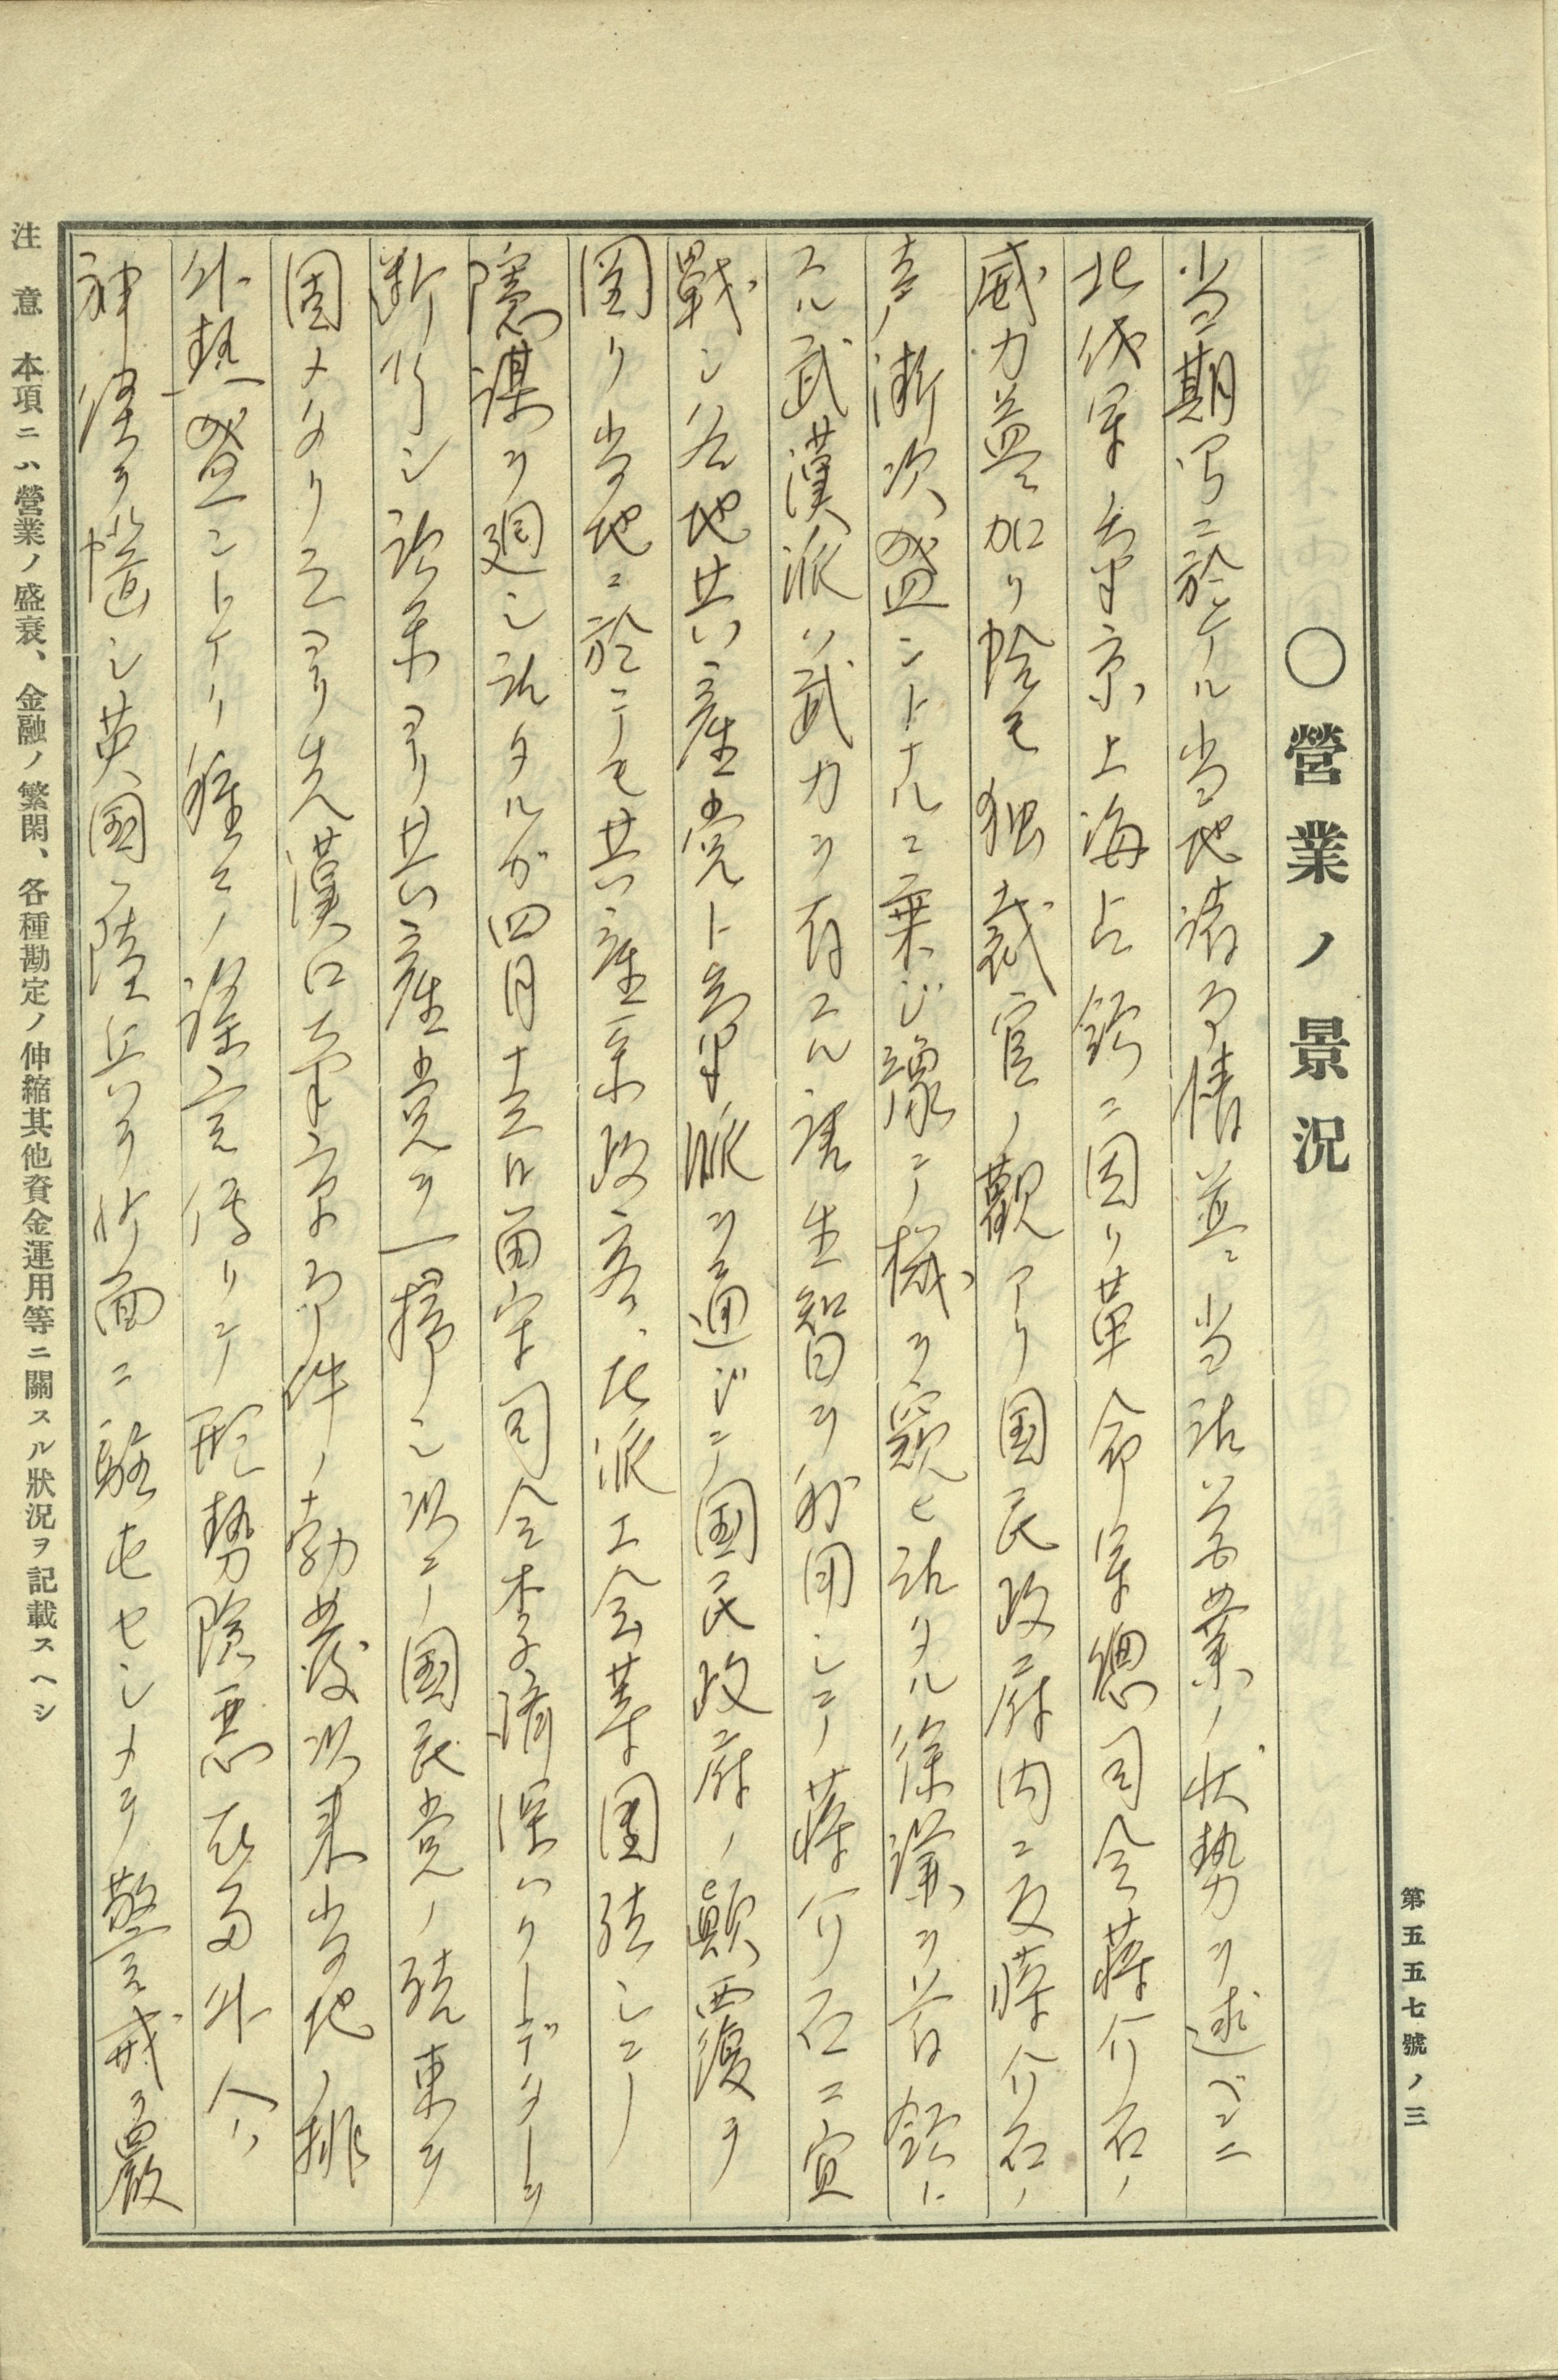 第五五七號ノ三
○營業ノ景況
当期間ニ於ケル当地諸事情並ニ当店営業ノ状勢ヲ述ベンニ
北伐軍南京上海占領ニ因リ革命軍総司令蒋介石ノ
威力益々加リ恰モ独裁官ノ観アリ国民政府内ニ反蒋介石ノ
声漸次盛ントナルニ乗ジ予テ機ヲ窺ヒ居タル徐謙ヲ首領ト
スル武漢派ハ武力ヲ有スル唐生智ヲ利用シテ蒋介石ニ宣
戦シ各地共産党ト気脈ヲ通ジテ国民政府ノ顛覆ヲ
図リ当地ニ於テモ共産系政客、左派工会等団結シテ
隠謀ヲ廻シ居タルガ四月十五日留守司令李済深ハクーデターヲ
断行シ敵系ヨリ共産党ヲ一掃シ以テ国民党ノ結束ヲ
固メタリ之ヨリ先漢口南京事件ノ勃発以来当地ノ排
外熱盛ントナリ種々ノ謡言伝リテ形勢険悪在留外人ハ
神経ヲ悩シ英国ハ陸兵ヲ沙面ニ駐屯セシメテ警戒ヲ厳
注意　本項ニハ營業ノ盛衰、金融ノ繁閑、各種勘定ノ伸縮其他資金運用等ニ關スル狀況ヲ記載スヘシ